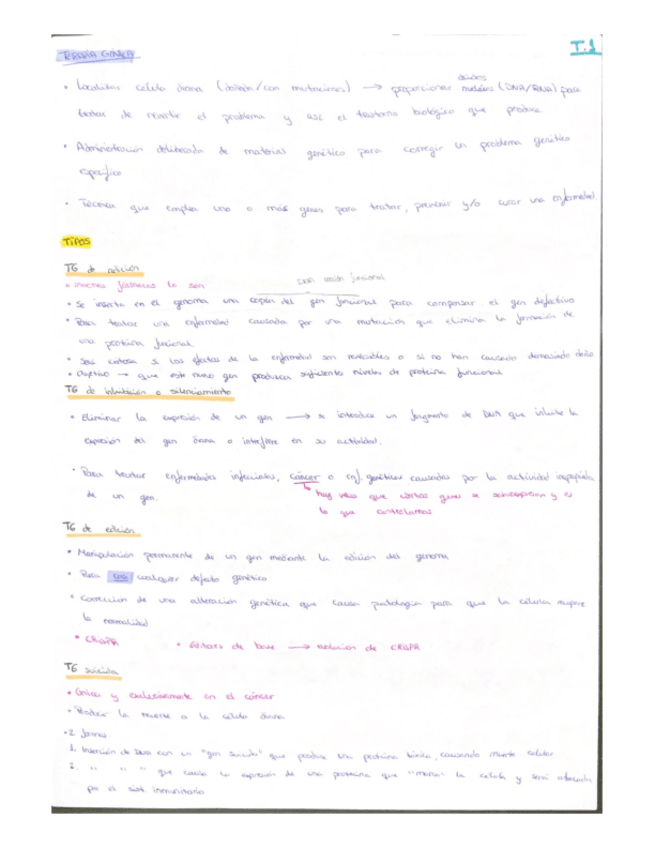 TERAPIA GÉNICA
T.1
• Localizar célula diana (dañada/con mutaciones) → proporcionar ácidos nucleicos (DNA/RNA) para
tratar de revertir el problema y así el trastorno biológico que produce.
• Administración deliberada de material genético para corregir un problema genético
específico
• Técnica que emplea uno o más genes para tratar, prevenir y/o curar una enfermedad.
TIPOS
TG de adición
• muchos fármacos lo son
DNA versión funcional
• Se inserta en el genoma una copia del gen funcional para compensar el gen defectivo
• Para tratar una enfermedad causada por una mutación que elimina la formación de
una proteína funcional.
• Será exitosa si los efectos de la enfermedad son reversibles o si no han causado demasiado daño
• Objetivo → que este nuevo gen produzca suficientes niveles de proteína funcional
TG de inhibición o silenciamiento
• Eliminar la expresión de un gen → se introduce un fragmento de DNA que inhibe la
expresión del gen diana o interfiere en su actividad.
• Para tratar enfermedades infecciosas, cáncer o enf. genéticas causadas por la actividad inapropiada
de un gen.
↳ hay veces que ciertos genes se sobreexpresan y es
lo que controlamos
TG de edición
• Manipulación permanente de un gen mediante la edición del genoma
• Para casi cualquier defecto genético
• Corrección de una alteración genética que causa patología para que la célula recupere
la normalidad
• CRISPR
• Editores de base → evolución de CRISPR
TG suicida
• Única y exclusivamente en el cáncer
• Producir la muerte a la célula diana
• 2 formas
1. Inserción de DNA con un "gen suicida" que produce una proteína tóxica, causando muerte celular
2. " " " que causa la expresión de una proteína que "marca" la célula y será atacada
por el sist. inmunitario